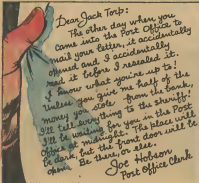 Dear Jack Torp:
The other day when you
came into the Post Office to
mail your letter, it accidentally
opened and I accidentally
read it before I resealed it.
I know what you're up to!
Unless you give me half of the
money you stole from the bank,
I'll tell everything to the sheriff!
I'll be waiting for you in the Post
Office at midnight. The place will
be dark, but the front door will be
open. Be there, or else.
Joe Hobson
Post Office Clerk